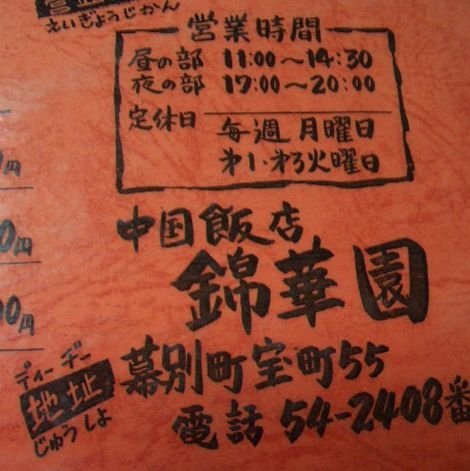 えいぎょうじかん
営業時間
昼の部 11:00～14:30
夜の部 17:00～20:00
定休日 毎週月曜日
第1・第3火曜日
円
0円
00円
中国飯店
錦華園
ディーヂー
地址
じゅうしょ
幕別町宝町55
電話 54-2408番